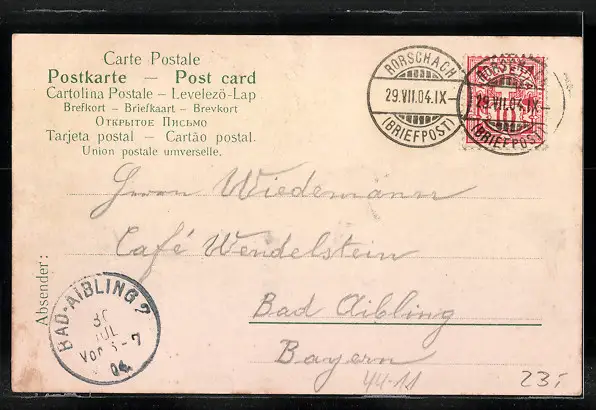 Carte Postale
Postkarte — Post card
Cartolina Postale – Levelező-Lap
Brefkort – Briefkaart – Brevkort
Открытое Письмо
Tarjeta postal – Cartão postal.
Union postale umverselle.
RORSCHACH
29.VII.04.IX–
(BRIEFPOST)
RORSCHACH
29.VII.04.IX–
(BRIEFPOST)
10
Herrn Wiedemann
Café Wendelstein
Bad Aibling
Bayern
Absender:
BAD-AIBLING 2
JUL
04.
44-11
23,-